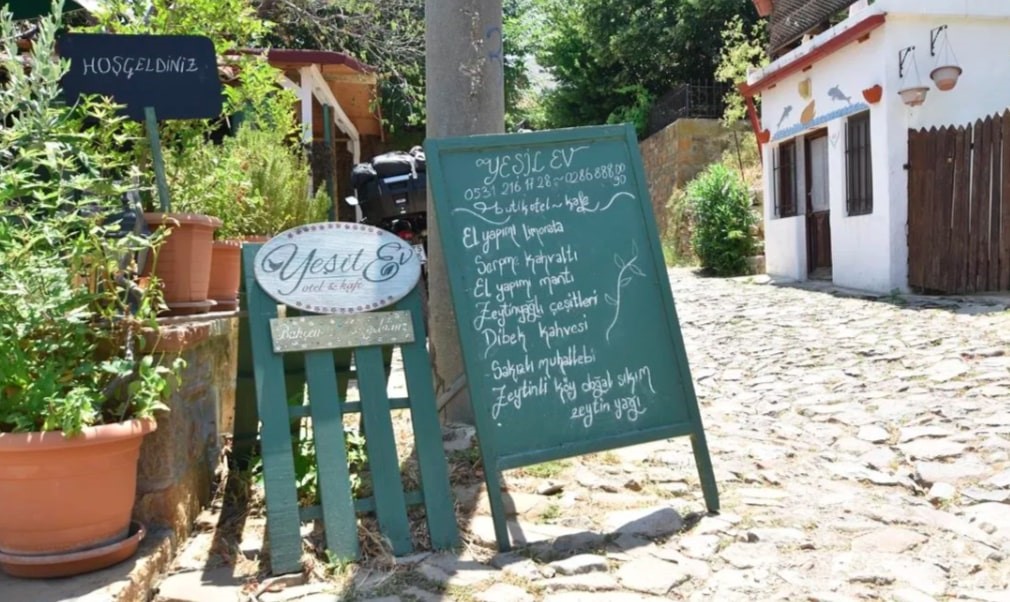 HOŞGELDİNİZ
Yeşil Ev
otel & kafe
Bahçen
YEŞİL EV
0531 216 17 28 ~ 0286 888 00 90
~ butik otel ~ kafe
El yapımı limonata
Serpme kahvaltı
El yapımı mantı
Zeytinyağlı çeşitleri
Dibek kahvesi
Sakızlı muhallebi
Zeytinli köy doğal sıkım
zeytin yağı